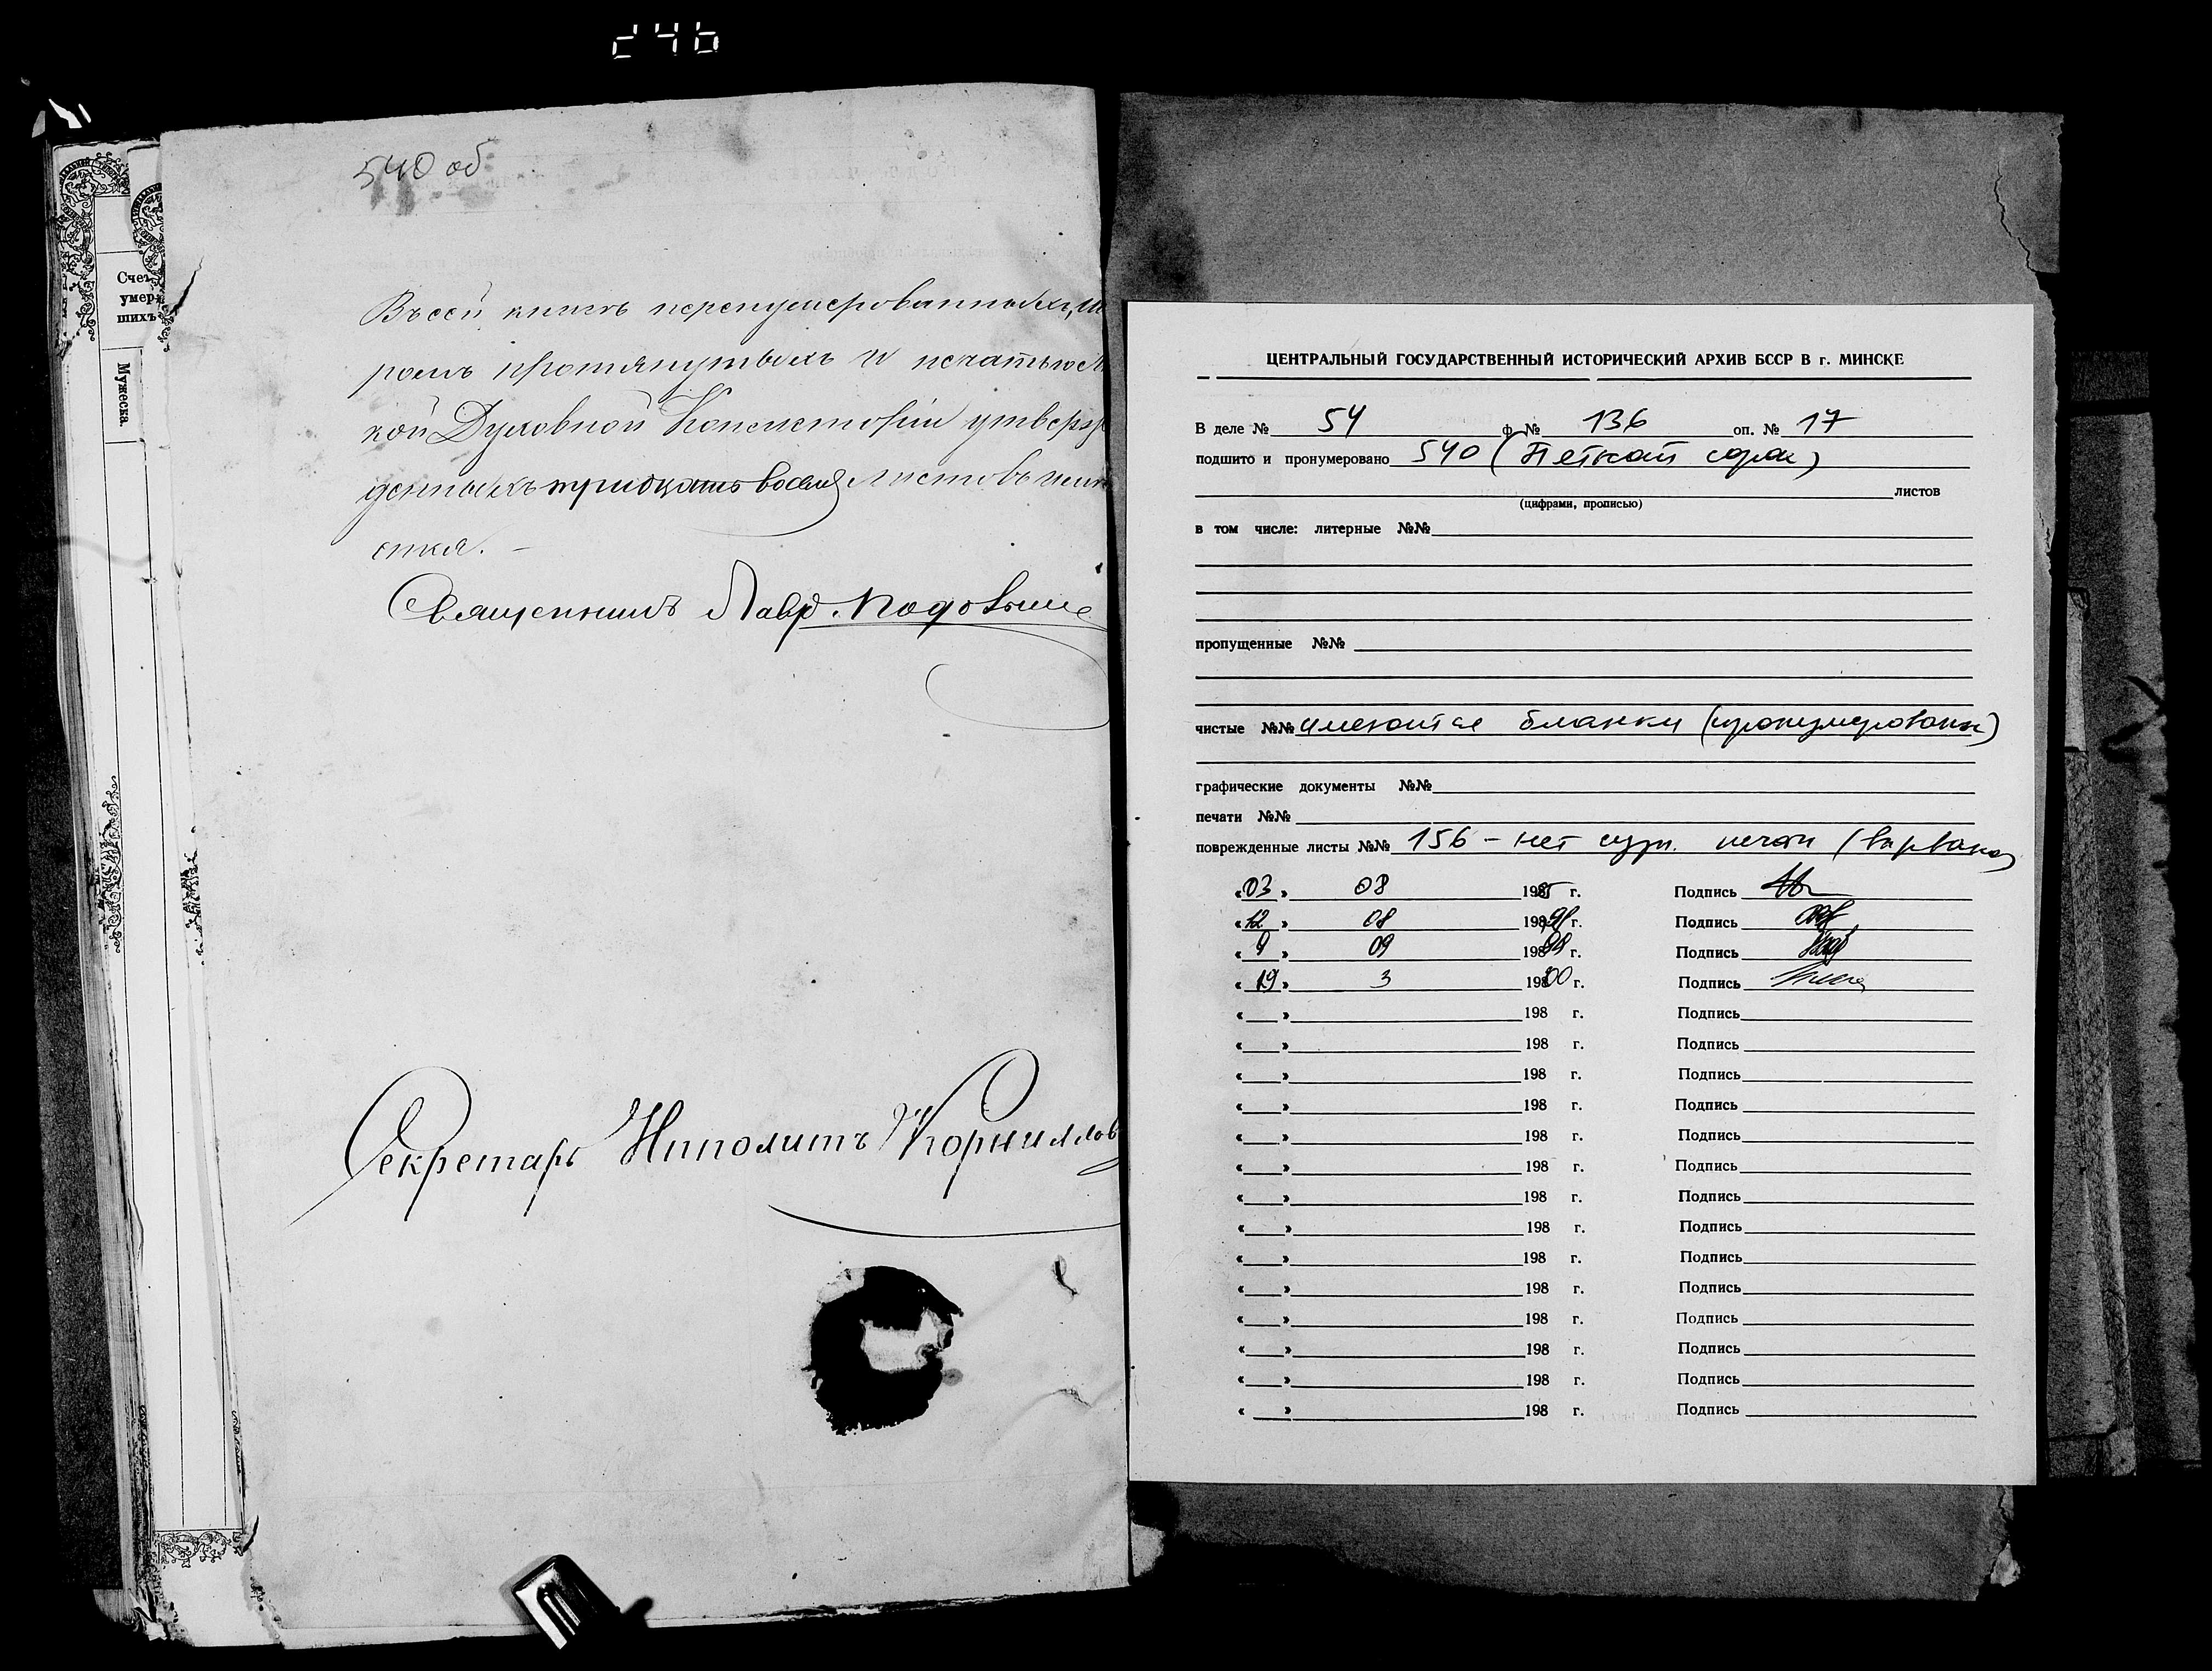 540 об
Счетъ
умер-
шихъ
Мужеска.
Въ сей книгѣ перенумерованныхъ, ш
ромъ протянутыхъ и печатью М
кой Духовной Консисторіи утверж
денныхъ тридцать восемь листовъ чи
ется. –
Священникъ Лавр.
Секретарь Ипполитъ Корнилов
ЦЕНТРАЛЬНЫЙ ГОСУДАРСТВЕННЫЙ ИСТОРИЧЕСКИЙ АРХИВ БССР В г. МИНСКЕ
В деле № 54 ф. № 136 оп. № 17
подшито и пронумеровано 540 (Пятьсот сорок)
листов
(цифрами, прописью)
в том числе: литерные №№
пропущенные №№
чистые №№ имеются бланки (пронумерованы)
графические документы №№
печати №№
поврежденные листы №№ 156 – нет сург. печати (вырвана)
« 03 » 08 198 г. Подпись
« 12 » 08 198 г. Подпись
« 9 » 09 198 г. Подпись
« 19 » 3 198 00 г. Подпись
« » 198 г. Подпись
« » 198 г. Подпись
« » 198 г. Подпись
« » 198 г. Подпись
« » 198 г. Подпись
« » 198 г. Подпись
« » 198 г. Подпись
« » 198 г. Подпись
« » 198 г. Подпись
« » 198 г. Подпись
« » 198 г. Подпись
« » 198 г. Подпись
« » 198 г. Подпись
« » 198 г. Подпись